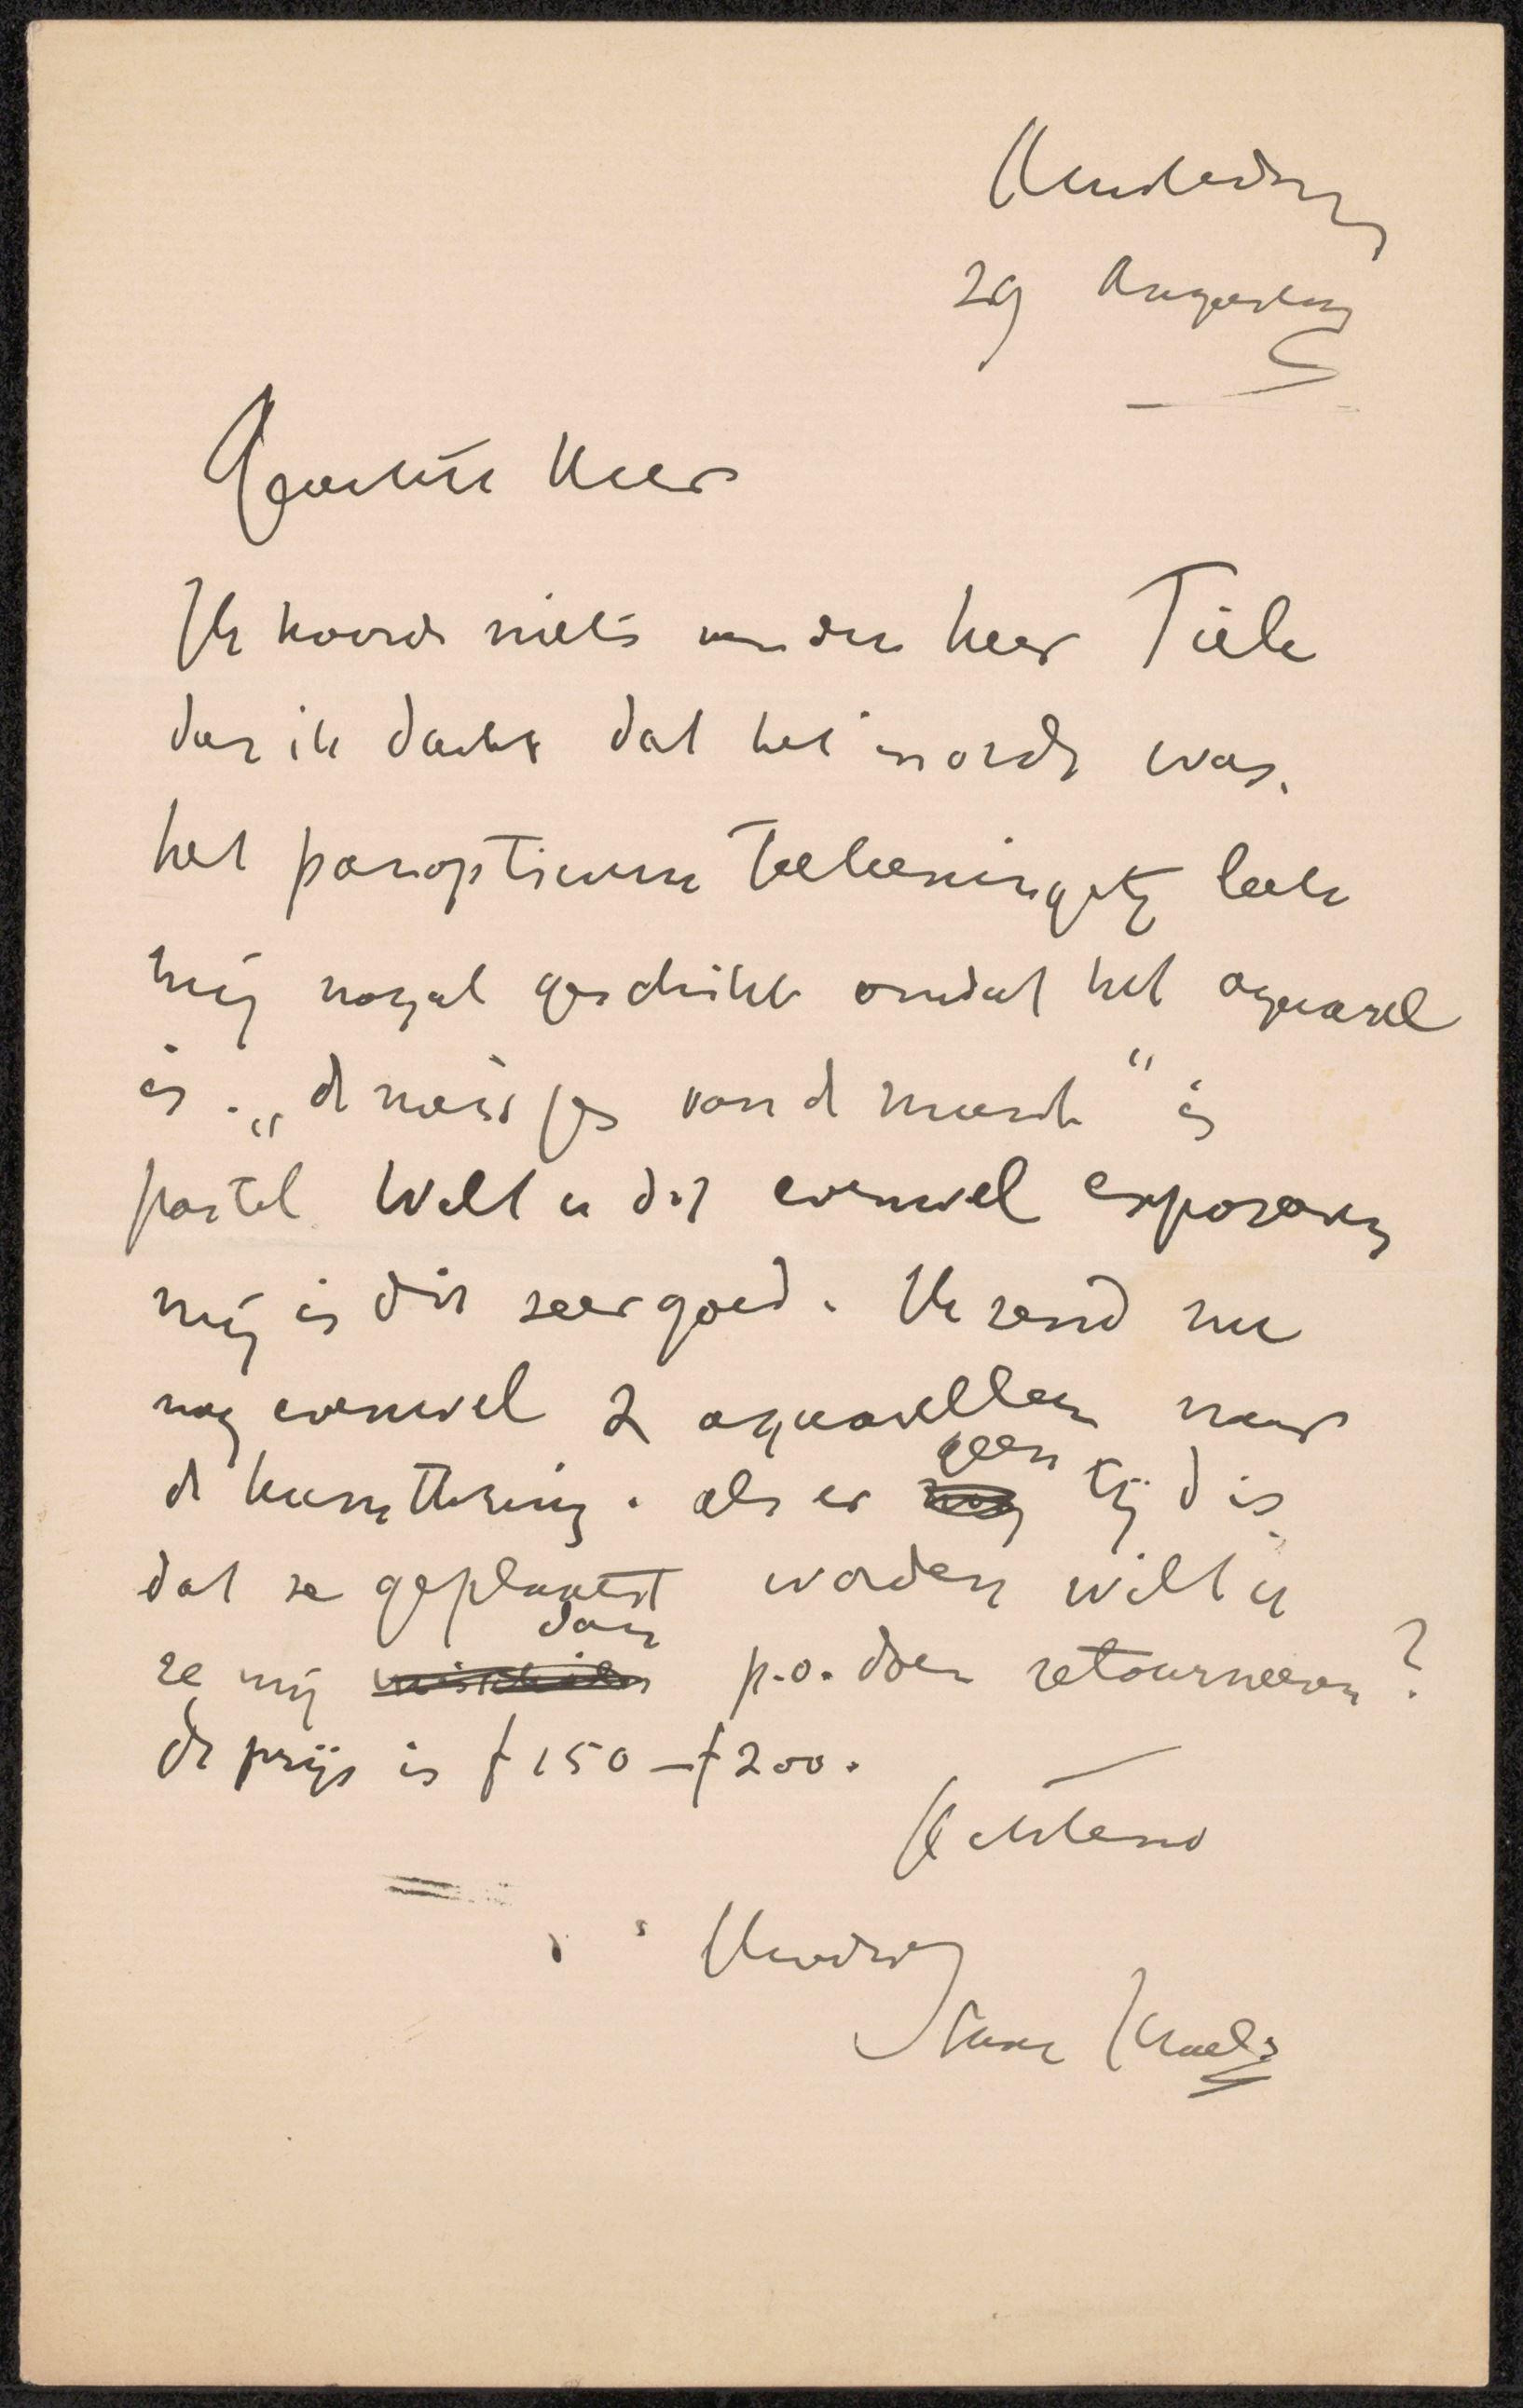 Amsterdam
29 Augustus
Geachte Heer
Ik hoorde niets van den heer Tiele
dus ik dacht dat het in orde was.
het panopticum teekeningetje leek
mij nogal geschikt omdat het aquarel
is. „de meisjes van de " is
pastel Wilt u dit evenwel exposeeren
mij is dit zeer goed. Ik zend nu
nog evenwel 2 aquarellen naar
de kunstkring. als er geen tijd is
dat ze geplaatst worden wilt u
ze mij misschien dan p.o. doen retourneeren?
de prijs is f 150 – f 200.
Achtend
Isaac Israels